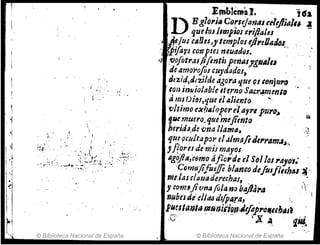 Emblema I. 162
DE gloria Cortesanas celestiales
que los limpios cristales
de sus calles, y templos
pisays con pies neuados.
vosotras si sentis penas yguales
de amorosos cuydados,
dezid, dezilde agora que os conjuro
con inuiolable eterno Sacramento
à mi Dios, que el aliento
vltimo exhalo por el ayre puro,
que muero, que me siento
herida, de vna llama,
que oculta por el alma se derrama,
y flores de mis mayos
agosta, como à flor de el Sol los rayos:
Como si fuesse blanco de sus flechas
me las claua derechas,
y como si vna sola no bastàra
nubes de ellas dispara,
puestanta municion desaprouechasse
X 2 qui
© Biblioteca Nacional de España
© Biblioteca Nacional de España